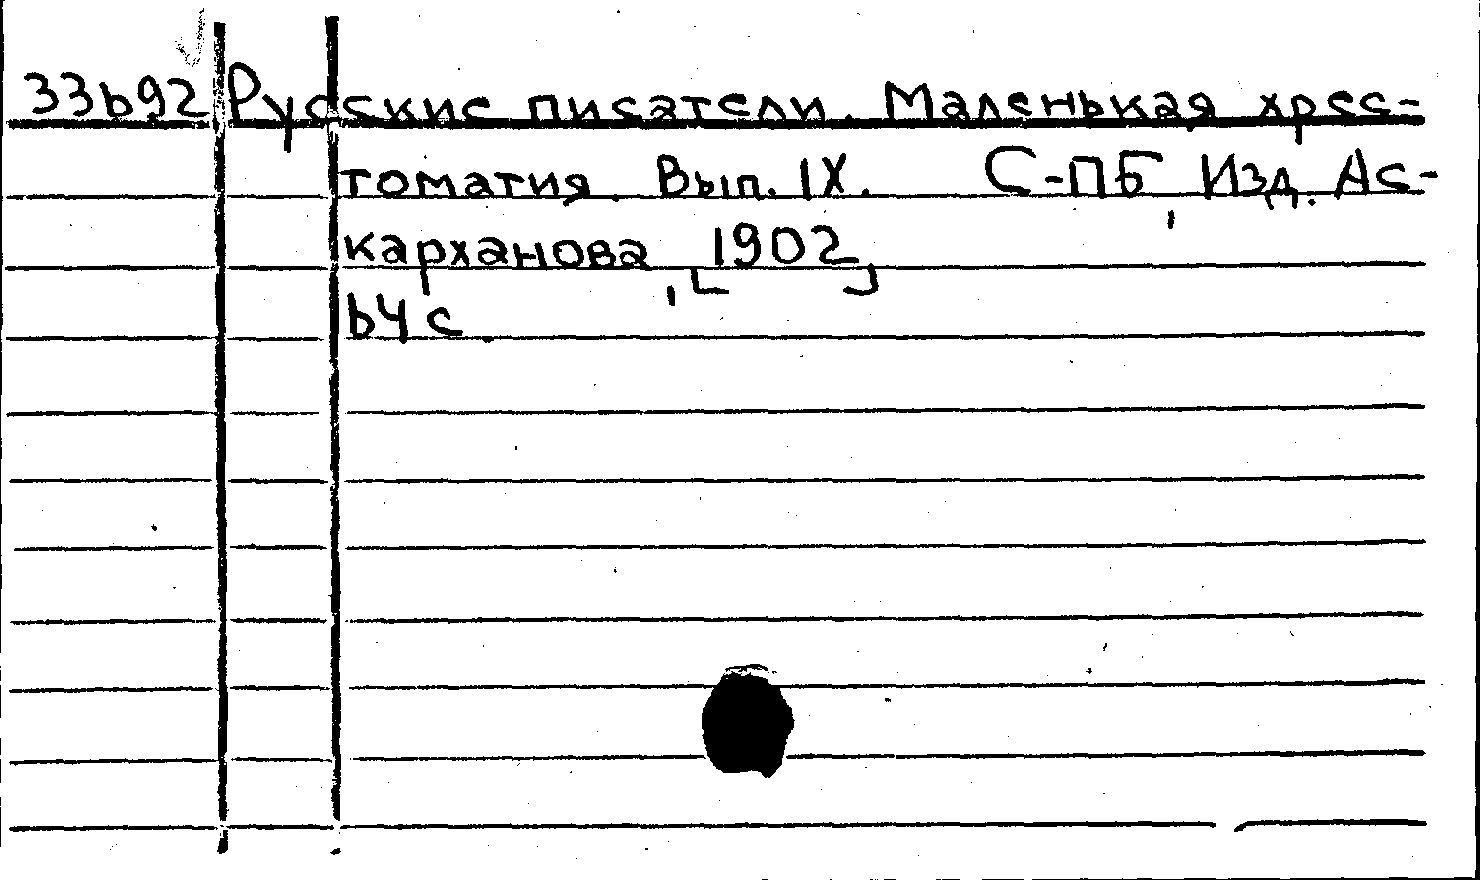 33b92 Русские писатели. Маленькая хрес-
томатия. Вып. IX. С-ПБ, Изд. Ас-
карханова, [1902]
b4 с.